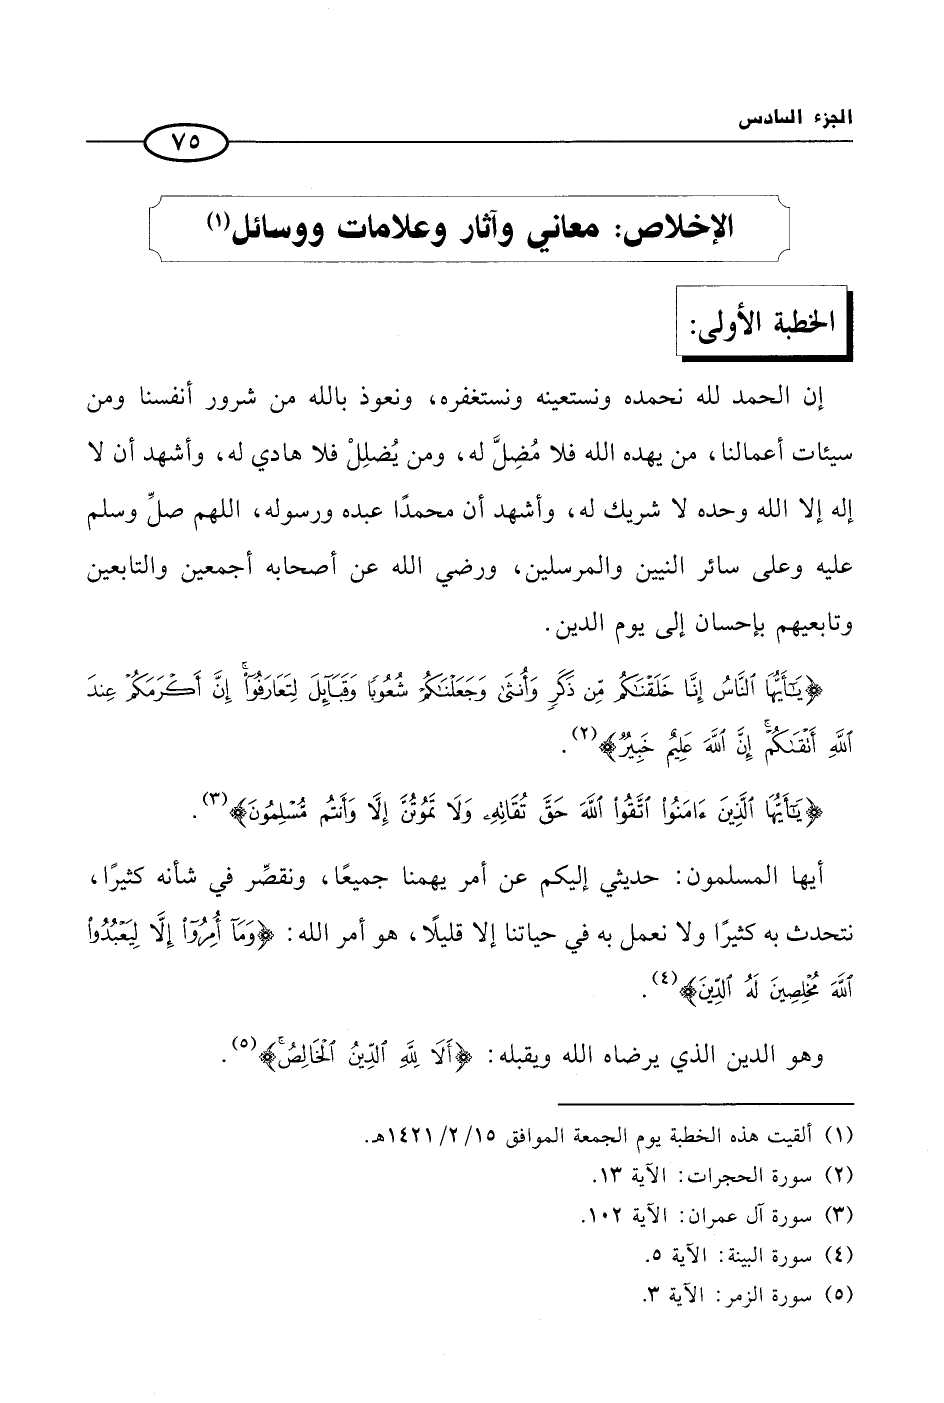 الجزء السادس
٧٥
الإخلاص: معاني وآثار وعلامات ووسائل(١)
الخطبة الأولى:
إن الحمد لله نحمده ونستعينه ونستغفره، ونعوذ بالله من شرور أنفسنا ومن
سيئات أعمالنا، من يهده الله فلا مُضِلَّ له، ومن يُضلِلْ فلا هادي له، وأشهد أن لا
إله إلا الله وحده لا شريك له، وأشهد أن محمدًا عبده ورسوله، اللهم صلِّ وسلم
عليه وعلى سائر النبين والمرسلين، ورضي الله عن أصحابه أجمعين والتابعين
وتابعيهم بإحسان إلى يوم الدين.
﴿يَٰٓأَيُّهَا ٱلنَّاسُ إِنَّا خَلَقْنَٰكُم مِّن ذَكَرٍ وَأُنثَىٰ وَجَعَلْنَٰكُمْ شُعُوبًا وَقَبَآئِلَ لِتَعَارَفُوٓا۟ ۚ إِنَّ أَكْرَمَكُمْ عِندَ
ٱللَّهِ أَتْقَىٰكُمْ ۚ إِنَّ ٱللَّهَ عَلِيمٌ خَبِيرٌ﴾(٢).
﴿يَٰٓأَيُّهَا ٱلَّذِينَ ءَامَنُوا۟ ٱتَّقُوا۟ ٱللَّهَ حَقَّ تُقَاتِهِۦ وَلَا تَمُوتُنَّ إِلَّا وَأَنتُم مُّسْلِمُونَ﴾(٣).
أيها المسلمون: حديثي إليكم عن أمر يهمنا جميعًا، ونقصِّر في شأنه كثيرًا،
نتحدث به كثيرًا ولا نعمل به في حياتنا إلا قليلًا، هو أمر الله: ﴿وَمَآ أُمِرُوٓا۟ إِلَّا لِيَعْبُدُوا۟
ٱللَّهَ مُخْلِصِينَ لَهُ ٱلدِّينَ﴾(٤).
وهو الدين الذي يرضاه الله ويقبله: ﴿أَلَا لِلَّهِ ٱلدِّينُ ٱلْخَالِصُ ۚ﴾(٥).
(١) ألقيت هذه الخطبة يوم الجمعة الموافق ١٤٢١/٢/١٥هـ.
(٢) سورة الحجرات: الآية ١٣.
(٣) سورة آل عمران: الآية ١٠٢.
(٤) سورة البينة: الآية ٥.
(٥) سورة الزمر: الآية ٣.